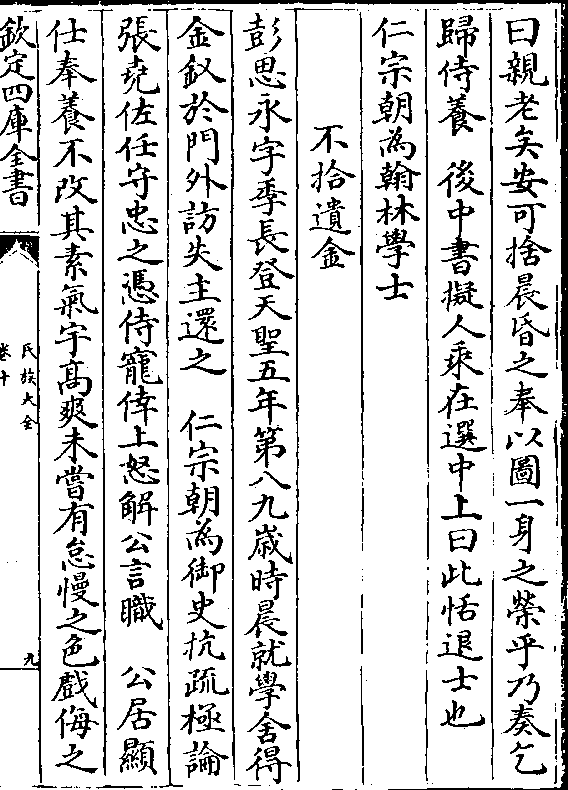 曰親老矣安可捨晨昏之奉以圖一身之榮乎乃奏乞
歸侍養　後中書擬人乘在選中上曰此恬退士也
仁宗朝為翰林學士
不拾遺金
彭思永字季長登天聖五年第八九歳時晨就學舍得
金釵於門外訪失主還之　仁宗朝為御史抗疏極論
張堯佐任守忠之憑侍寵倖上怒解公言職　公居顯
仕奉養不改其素氣宇髙爽未嘗有怠慢之色戲侮之
欽定四庫全書
氏族大全
卷十
九